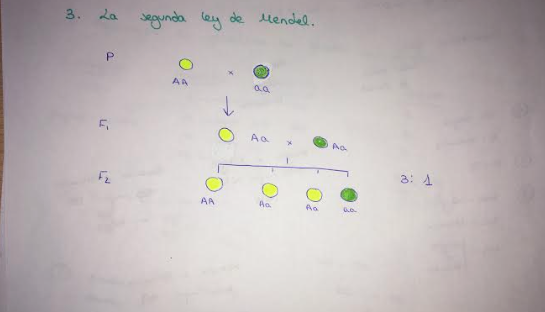 3. La segunda ley de Mendel.
P
x
AA aa
F1 Aa x Aa
F2 3: 1
AA Aa Aa aa